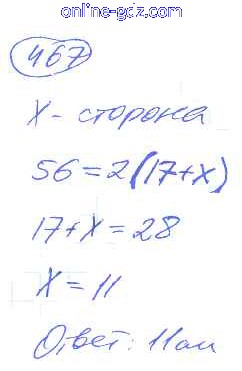 online-gdz.com
467
X - сторона
56 = 2(17+x)
17+x = 28
X = 11
Ответ: 11см